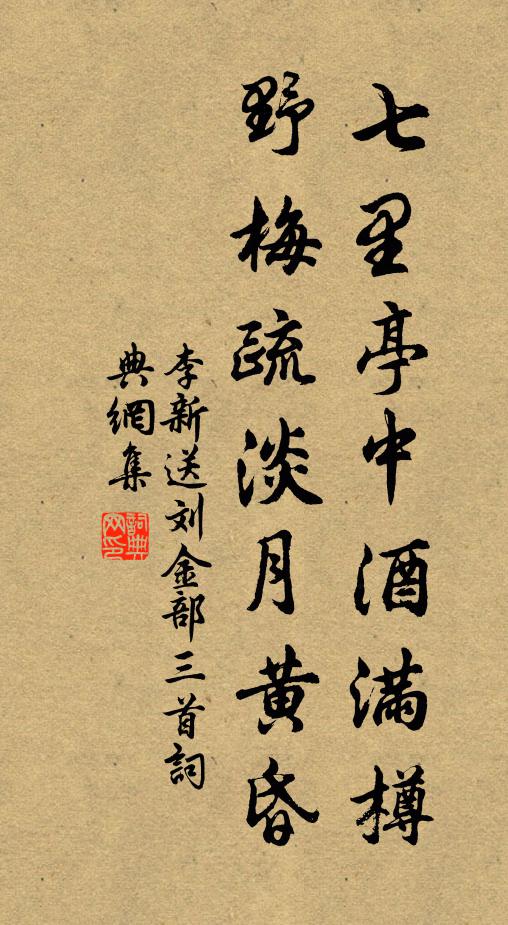 七里亭中酒满樽
野梅疏淡月黄昏
李新送刘金部三首詞
典網集
詞典網印